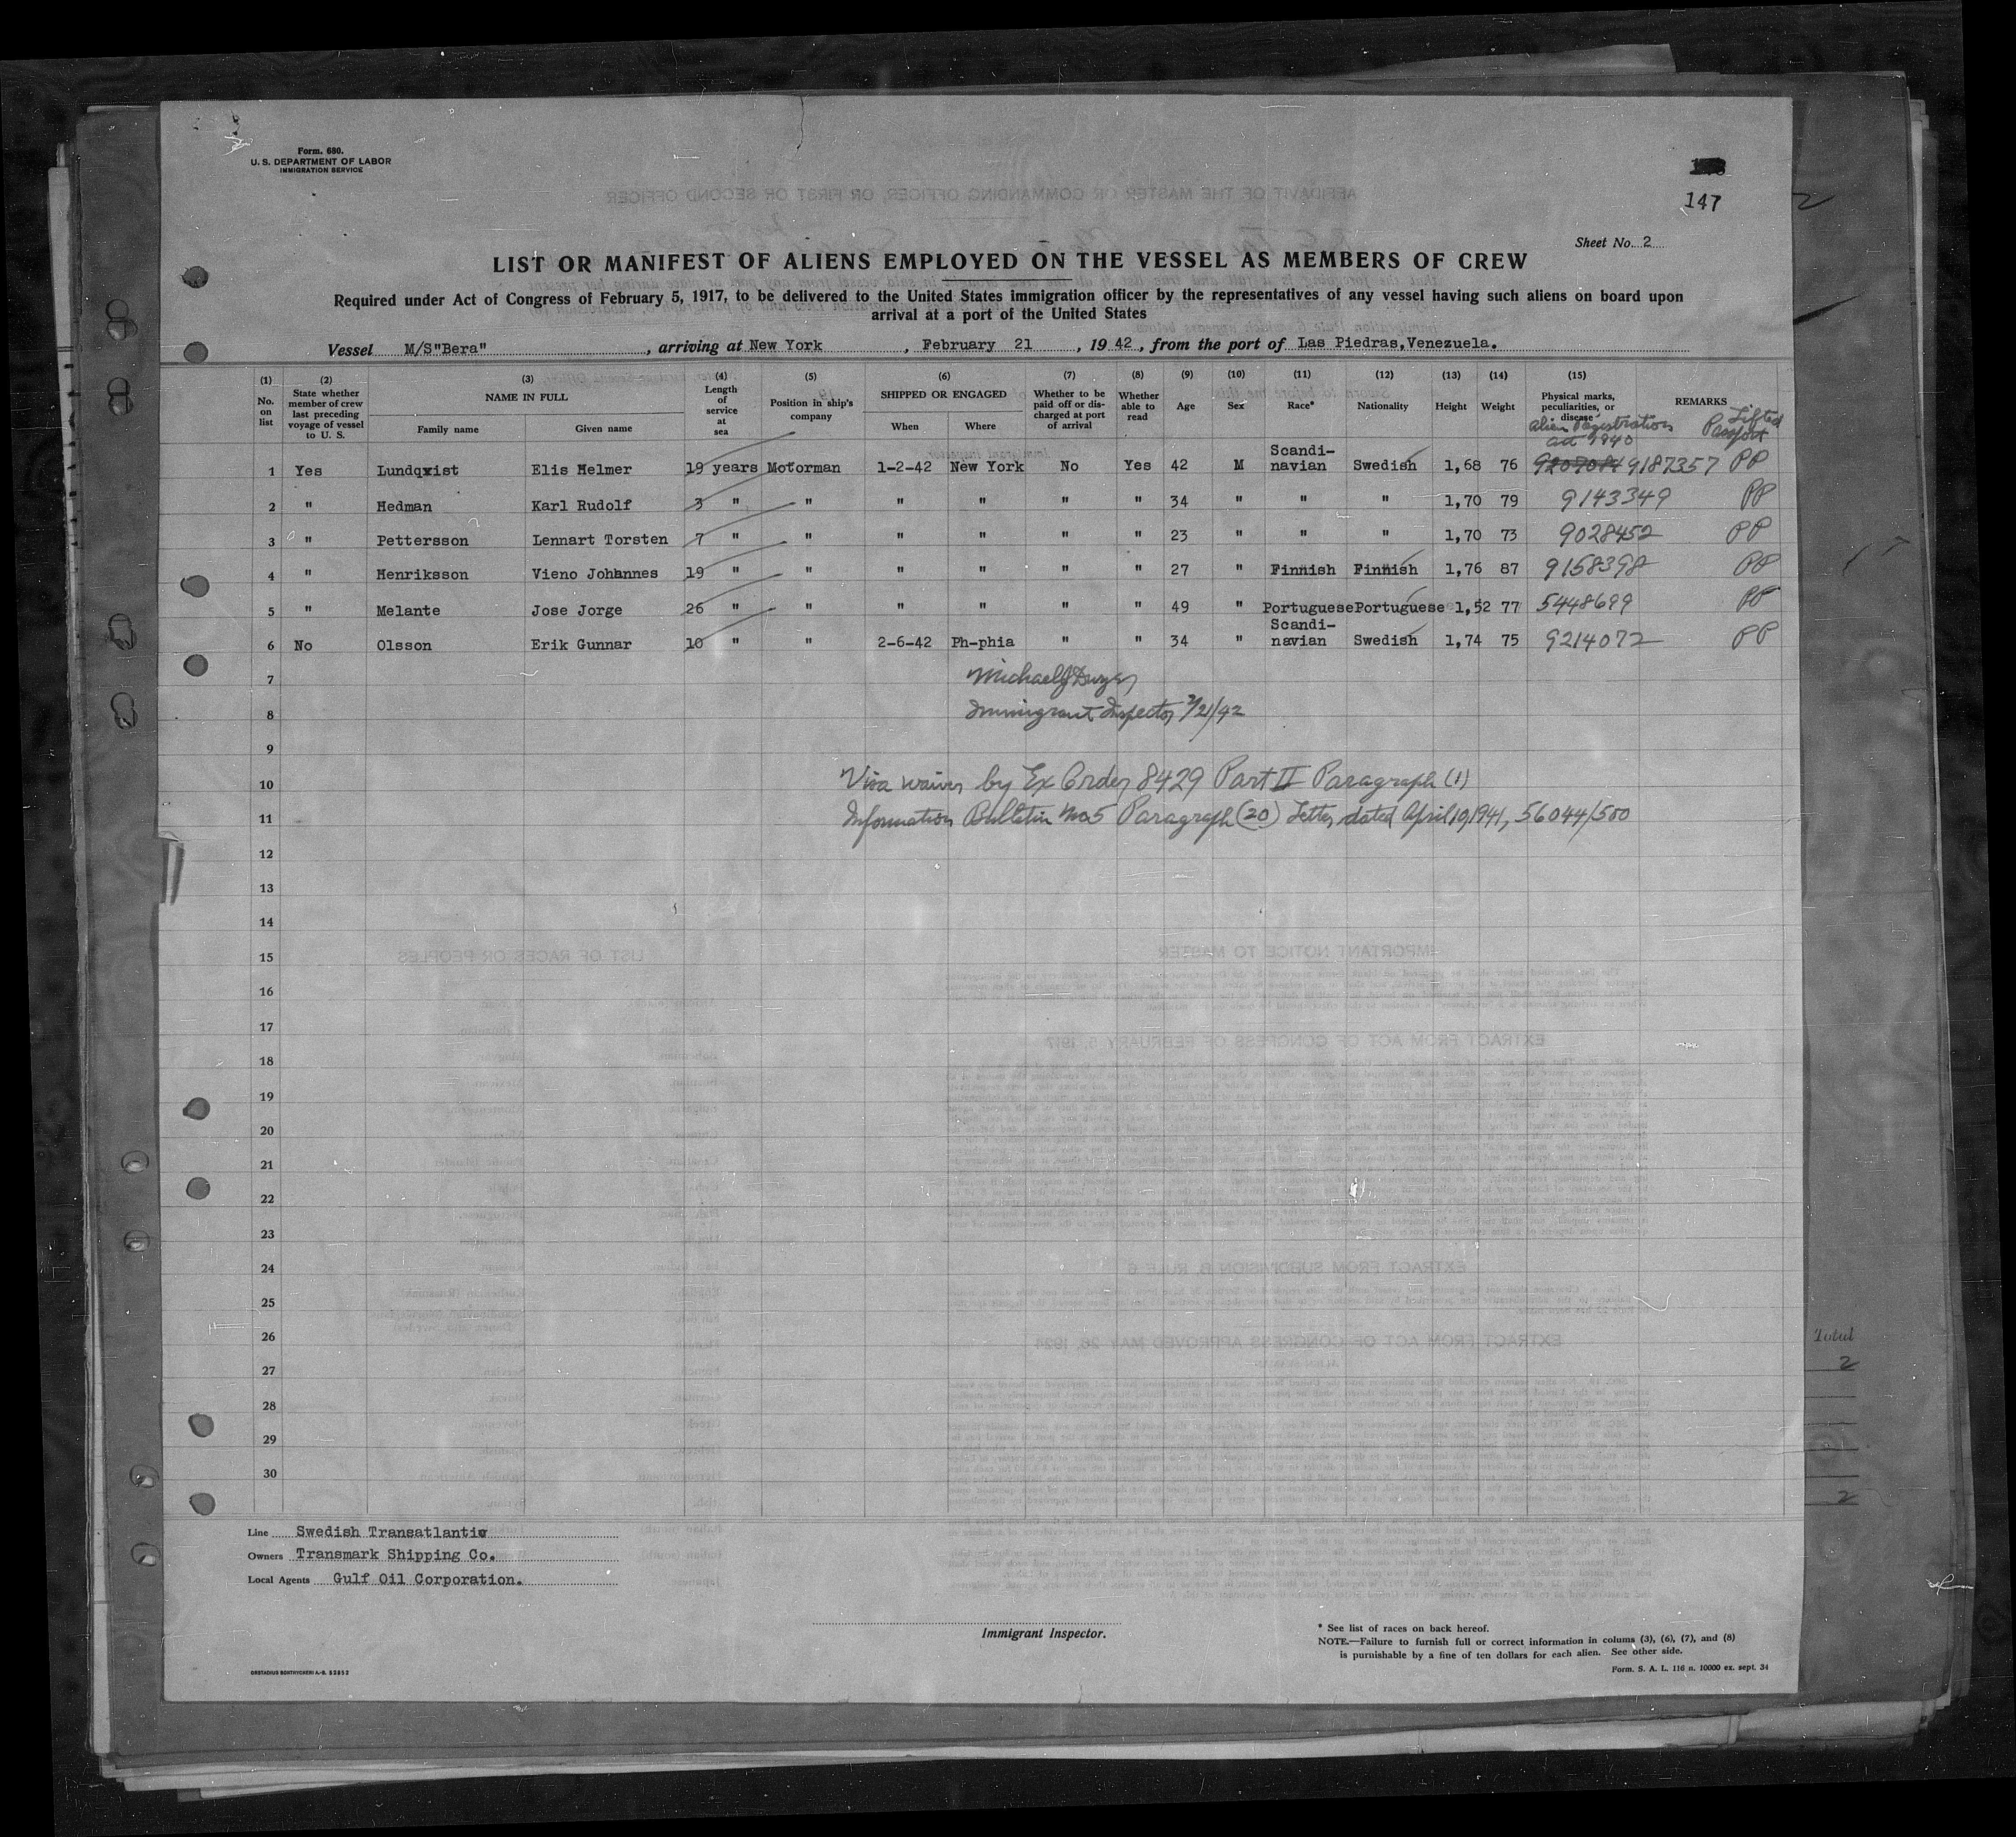 Form. 680.
U. S. DEPARTMENT OF LABOR
IMMIGRATION SERVICE
147
Sheet No. 2
LIST OR MANIFEST OF ALIENS EMPLOYED ON THE VESSEL AS MEMBERS OF CREW
Required under Act of Congress of February 5, 1917, to be delivered to the United States immigration officer by the representatives of any vessel having such aliens on board upon
arrival at a port of the United States
Vessel M/S"Bera", arriving at New York, February 21, 1942, from the port of Las Piedras,Venezuela.
(1) No. on list (2) State whether member of crew last preceding voyage of vessel to U. S. (3) NAME IN FULL Family name Given name (4) Length of service at sea (5) Position in ship's company (6) SHIPPED OR ENGAGED When Where (7) Whether to be paid off or discharged at port of arrival (8) Whether able to read (9) Age (10) Sex (11) Race* (12) Nationality (13) Height (14) Weight (15) Physical marks, peculiarities, or disease REMARKS
Alien Registration act 1940 Lifted Passport
1 Yes Lundqvist Elis Helmer 19 years Motorman 1-2-42 New York No Yes 42 M Scandi-navian Swedish 1,68 76 9187357 PP
2 " Hedman Karl Rudolf 3 " " " " " " 34 " " " 1,70 79 9143349 PP
3 " Pettersson Lennart Torsten 7 " " " " " " 23 " " " 1,70 73 9028452 PP
4 " Henriksson Vieno Johannes 19 " " " " " " 27 " Finnish Finnish 1,76 87 9158398 PP
5 " Melante Jose Jorge 26 " " " " " " 49 " Portuguese Portuguese 1,52 77 5448699 PP
6 No Olsson Erik Gunnar 10 " " 2-6-42 Ph-phia " " 34 " Scandi-navian Swedish 1,74 75 9214072 PP
7 Michael J Dwyer
8 Immigrant Inspector 2/21/42
9
10 Visa waiver by Ex Order 8429 Part II Paragraph (1)
11 Information Bulletin No 5 Paragraph (20) Letter dated April 10, 1941, 56044/500
12
13
14
15
16
17
18
19
20
21
22
23
24
25
26
27
28
29
30
Total
2
2
Line Swedish Transatlantic
Owners Transmark Shipping Co.
Local Agents Gulf Oil Corporation.
Immigrant Inspector.
* See list of races on back hereof.
NOTE.—Failure to furnish full or correct information in colums (3), (6), (7), and (8)
is purnishable by a fine of ten dollars for each alien. See other side.
Form. S. A. L. 116 n. 10000 ex. sept. 34